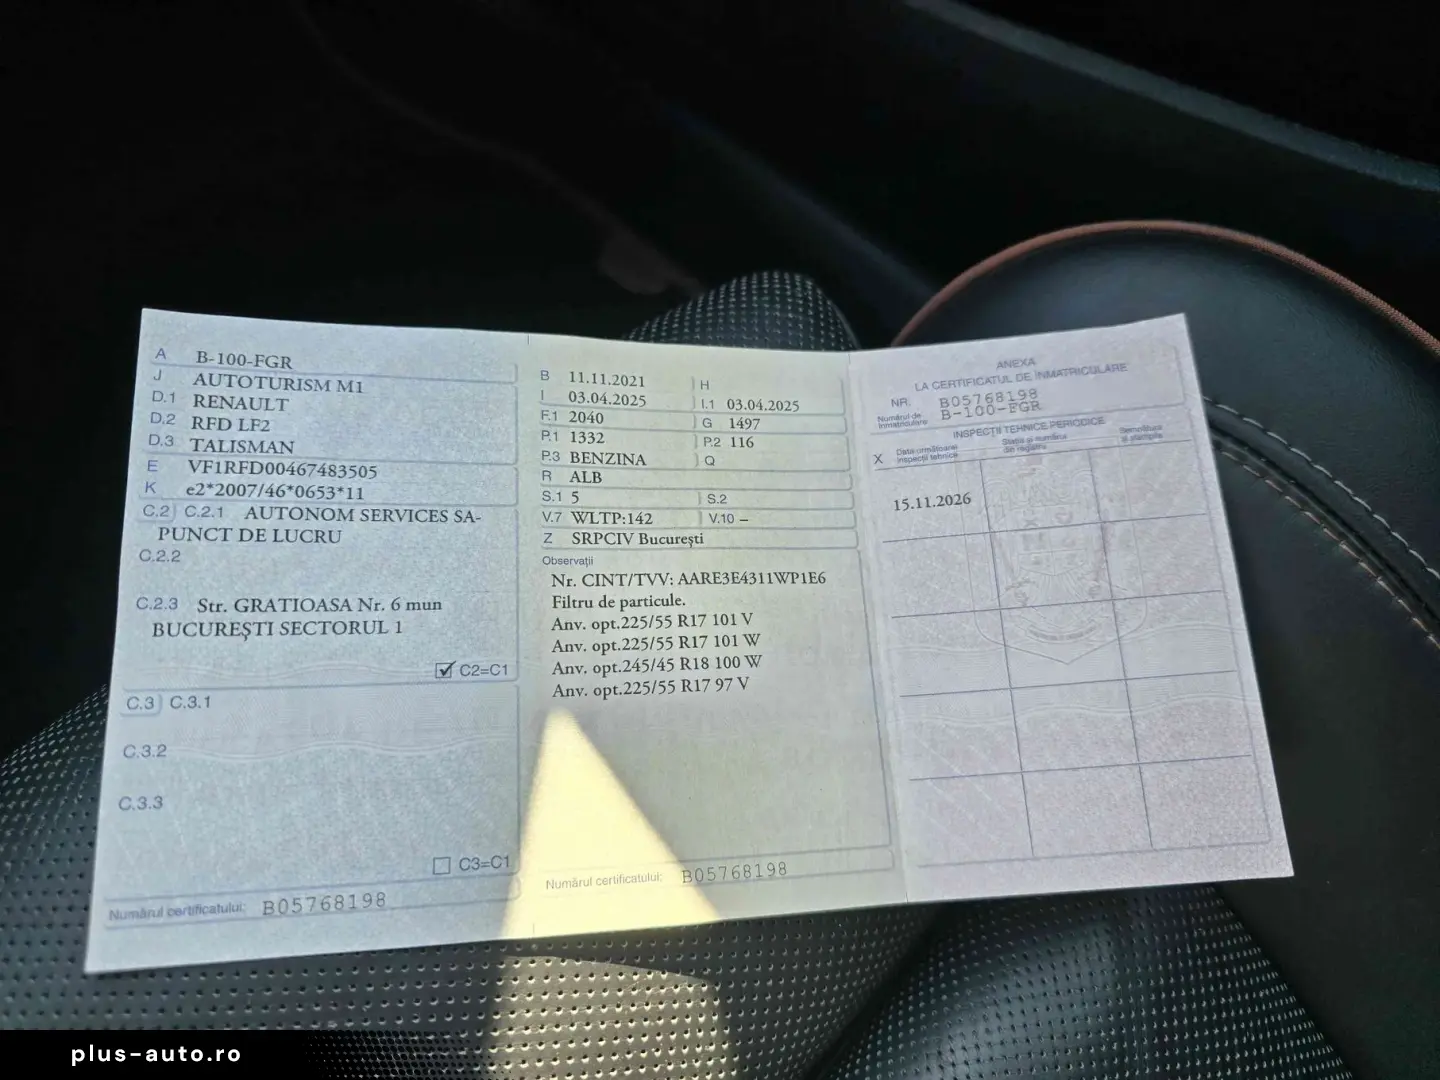 A B-100-FGR
J AUTOTURISM M1
D.1 RENAULT
D.2 RFD LF2
D.3 TALISMAN
E VF1RFD00467483505
K e2*2007/46*0653*11
C.2 C.2.1 AUTONOM SERVICES SA-
PUNCT DE LUCRU
C.2.2
C.2.3 Str. GRATIOASA Nr. 6 mun
BUCUREŞTI SECTORUL 1
C2=C1
C.3 C.3.1
C.3.2
C.3.3
C3=C1
Numărul certificatului: B05768198
B 11.11.2021 H
I 03.04.2025 I.1 03.04.2025
F.1 2040 G 1497
P.1 1332 P.2 116
P.3 BENZINA Q
R ALB
S.1 5 S.2
V.7 WLTP:142 V.10 –
Z SRPCIV Bucureşti
Observaţii
Nr. CINT/TVV: AARE3E4311WP1E6
Filtru de particule.
Anv. opt.225/55 R17 101 V
Anv. opt.225/55 R17 101 W
Anv. opt.245/45 R18 100 W
Anv. opt.225/55 R17 97 V
Numărul certificatului: B05768198
ANEXA
LA CERTIFICATUL DE ÎNMATRICULARE
NR. B05768198
Numărul de înmatriculare B-100-FGR
INSPECŢII TEHNICE PERIODICE
X Data următoarei inspecţii tehnice
Staţia şi numărul din registru
Semnătura şi ştampila
15.11.2026
plus-auto.ro